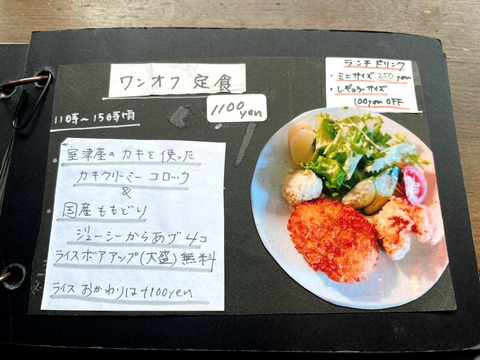 ワンオフ 定食
1100yen
ランチ ドリンク
・ミニサイズ 250yen
・レギュラーサイズ
100yen OFF
11時〜15時頃
室津産のカキを使った
カキクリーミーコロッケ
&
国産ももどり
ジューシーからあげ 4コ
ライスボアアップ(大盛)無料
ライスおかわりは+100yen